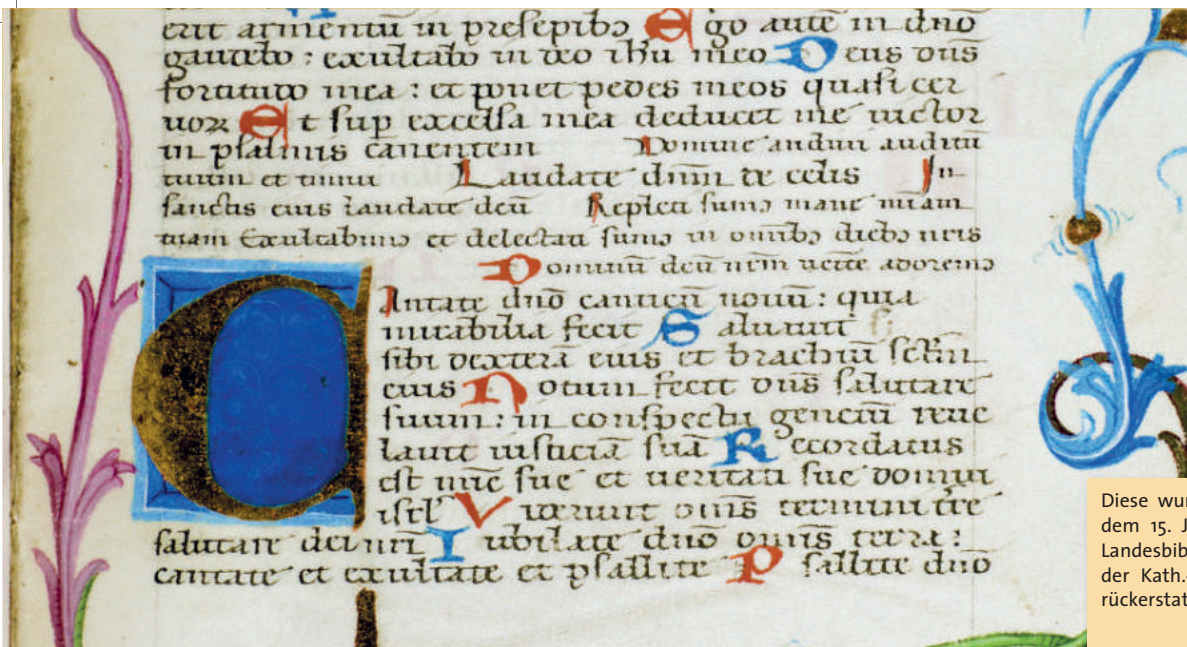 erit armentū in presepibꝫ Ego autē in dnō
gaudebo : exultabo in deo ihū meo Deus dn̄s
fortitudo mea : et ponet pedes meos quasi cer
uoꝝ Et sup excelsa mea deducet me uictor
in psalmis canentem Domine audiui auditū
tuum et timui Laudate dn̄m de celis In
sanctis eius laudate deū Repleti sumꝰ mane mīam
tuam Exultabimꝰ et delectati sumꝰ in omībꝫ diebꝫ nr̄is
Dominū deū nr̄m uenite adoremꝰ
CAntate dnō canticū nouū : quia
mirabilia fecit Saluauit
sibi dexterā eius et brachiū sctm̄
eius Notum fecit dn̄s salutare
suum : in conspectu genciū reue
lauit iusticiā suā Recordatus
est mīe sue et ueritati sue domui
isrl̄ Viderunt om̄s termini tr̄e
salutare dei nr̄i Iubilate dnō om̄is terra :
cantate et exultate et psallite Psallite dnō
Diese wur
dem 15. J
Landesbib
der Kath.
rückerstat